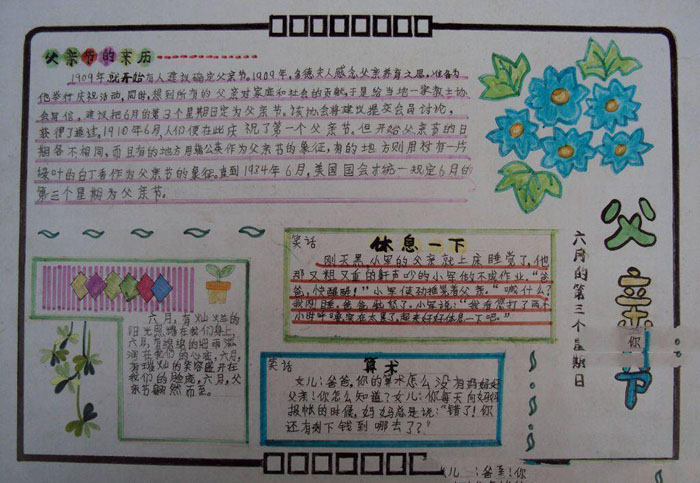 父亲节的来历
1909年就开始有人建议确定父亲节。1909年,多德夫人感念父亲养育之恩,准备为
他举行庆祝活动,同时,想到所有的父亲对家庭和社会的贡献,于是给当地一家教士协
会写信,建议把6月的第3个星期日定为父亲节。该协会将建议提交会员讨论,
获得了通过,1910年6月人们便在此庆祝了第一个父亲节。但开始父亲节的日
期各不相同,而且有的地方用蒲公英作为父亲节的象征,有的地方则用衬有一片
绿叶的白丁香作为父亲节的象征。直到1934年6月,美国国会才统一规定6月的
第三个星期为父亲节。
父亲节
六月的第三个星期日
笑话
休息一下
刚天黑小军的父亲就上床睡觉了,他
那又粗又重的鼾声吵的小军做不成作业。“爸
爸,快醒醒!”小军使劲推晃着父亲。“
小军说:“我看您打了两个
小时呼噜实在太累了,起来好好休息一下吧。”
六月,有灿烂的
阳光照耀在我们身上,
六月,有绵绵的细雨滋
润在我们的心底,六月,
有灿烂的笑容盛开在
我们的脸庞,六月,父
亲节翩然而至。
笑话
算术
女儿:爸爸,你的算术怎么没有妈妈好
父亲:你怎么知道?女儿:你每天向妈妈
报帐的时候,妈妈总是说:“错了!你
还有剩下钱到哪去了?”
你
女儿:爸爸!你